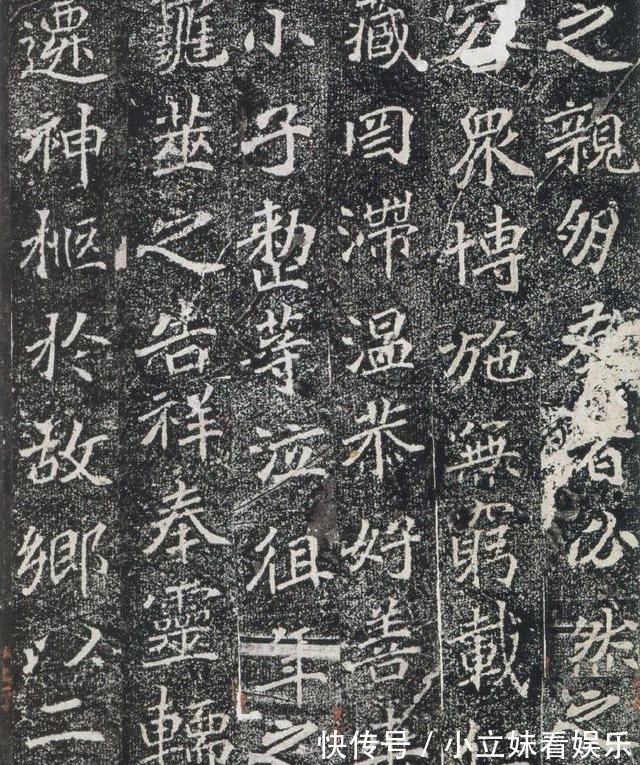 之親朋友石公然之
容眾博施無窮載
藏罔滯溫恭好善
小子整等泣徂年之
龜筮之告祥奉靈轜
遷神柩於故鄉以二
快传号 / 小立妹看娱乐